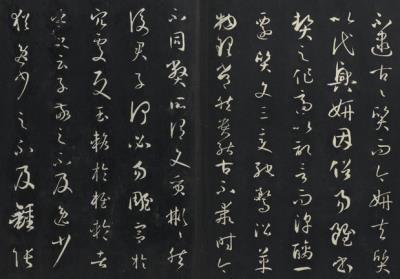 不逮古古質而今妍夫質
以代興妍因俗易雖書
契之作適以記言而淳醨一
遷質文三變馳騖沿革
物理常然貴能古不乖時今
不同弊所謂文質彬彬然
後君子何必易雕宮於
穴處反玉輅於椎輪者
乎又云子敬之不及逸少
猶逸少之不及鍾張